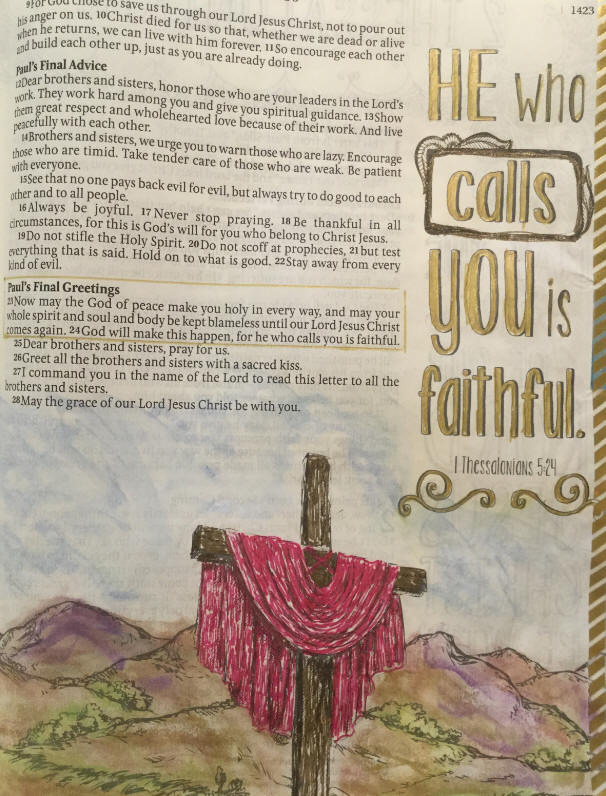 9For God chose to save us through our Lord Jesus Christ, not to pour out
his anger on us. 10Christ died for us so that, whether we are dead or alive
when he returns, we can live with him forever. 11So encourage each other
and build each other up, just as you are already doing.
Paul's Final Advice
12Dear brothers and sisters, honor those who are your leaders in the Lord's
work. They work hard among you and give you spiritual guidance. 13Show
them great respect and wholehearted love because of their work. And live
peacefully with each other.
14Brothers and sisters, we urge you to warn those who are lazy. Encourage
those who are timid. Take tender care of those who are weak. Be patient
with everyone.
15See that no one pays back evil for evil, but always try to do good to each
other and to all people.
16Always be joyful. 17Never stop praying. 18Be thankful in all
circumstances, for this is God's will for you who belong to Christ Jesus.
19Do not stifle the Holy Spirit. 20Do not scoff at prophecies, 21but test
everything that is said. Hold on to what is good. 22Stay away from every
kind of evil.
Paul's Final Greetings
23Now may the God of peace make you holy in every way, and may your
whole spirit and soul and body be kept blameless until our Lord Jesus Christ
comes again. 24God will make this happen, for he who calls you is faithful.
25Dear brothers and sisters, pray for us.
26Greet all the brothers and sisters with a sacred kiss.
27I command you in the name of the Lord to read this letter to all the
brothers and sisters.
28May the grace of our Lord Jesus Christ be with you.
1423
HE who
calls
you is
faithful.
1 Thessalonians 5:24